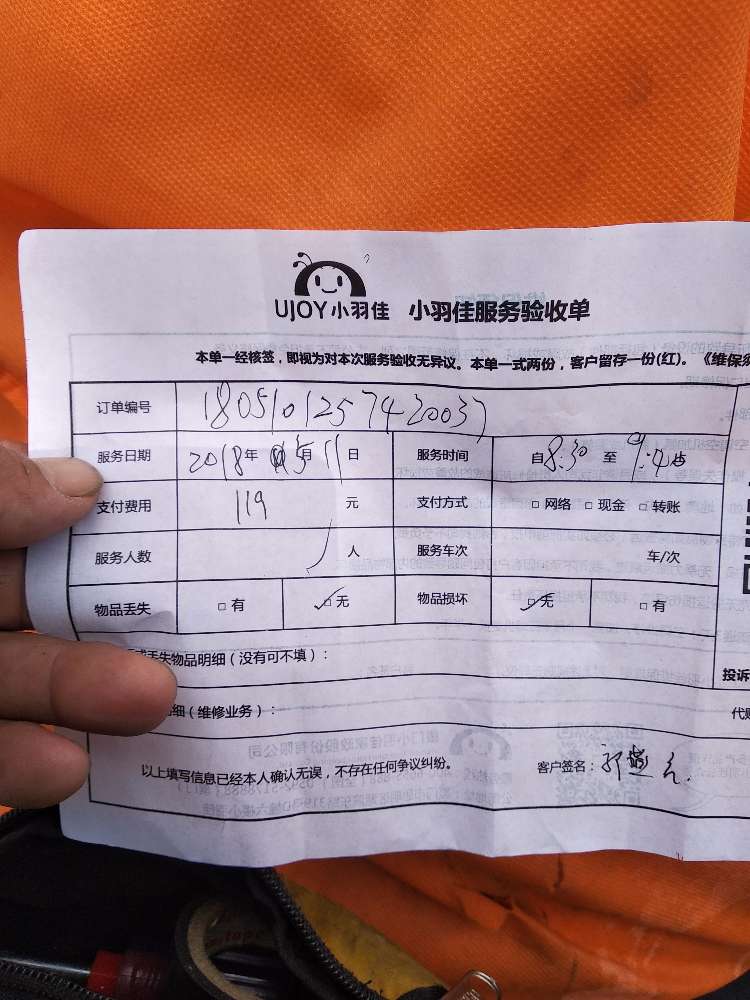 UJOY小羽佳 小羽佳服务验收单
本单一经核签，即视为对本次服务验收无异议。本单一式两份，客户留存一份(红)。《维保须
订单编号 1805101257420037
服务日期 2018年 5月 11日 服务时间 自8:30 至 9:40
支付费用 119 元 支付方式 □网络 □现金 □转账
服务人数 人 服务车次 车/次
物品丢失 □有 ☑无 物品损坏 ☑无 □有
丢失物品明细（没有可不填）：
投诉
细（维修业务）：
代
以上填写信息已经本人确认无误，不存在任何争议纠纷。 客户签名：